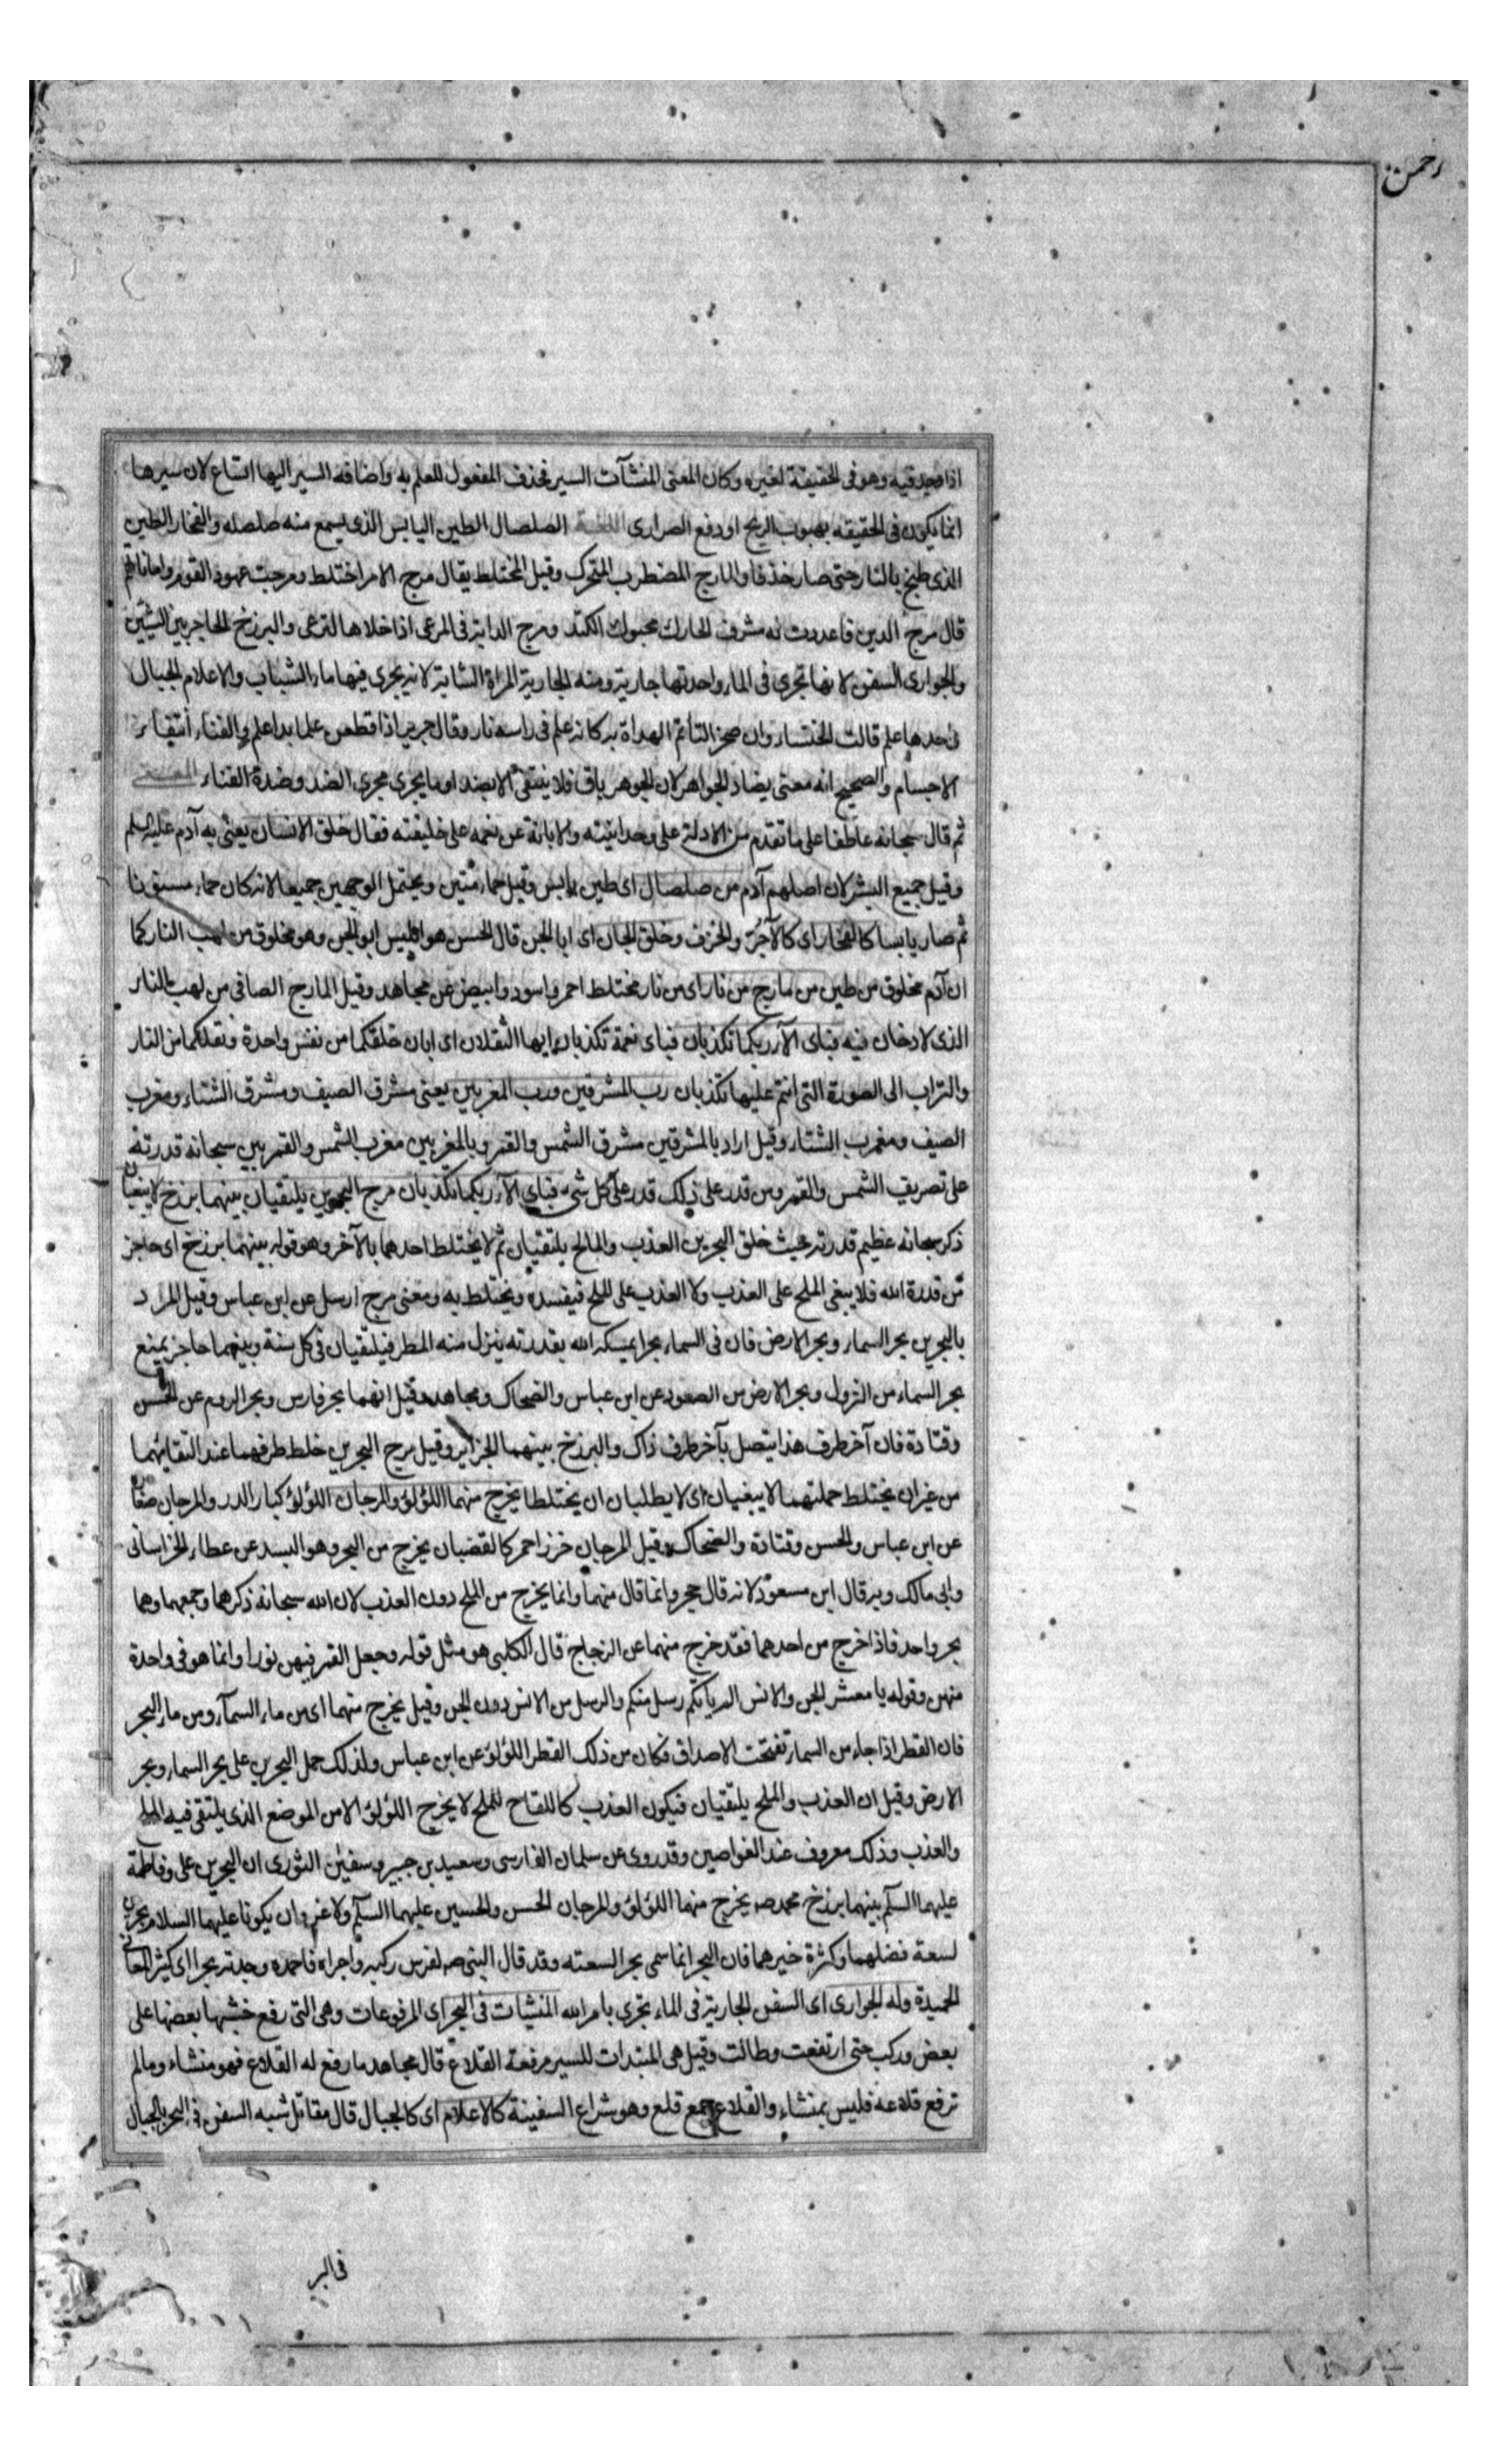 رحمن
اذا صيد فيه وهو فى الحقيقة لغيره وكان المعنى المنشآت السير فحذف المفعول للعلم به واضافه السير اليها اتساع لان سيرها
انما يكون فى الحقيقه بهبوب الريح او دفع الصرارى اللغة الصلصال الطين اليابس الذى يسمع منه صلصله والفخار الطين
الذى طبخ بالنار حتى صار خذفا والمارج المضطرب المتحرك وقيل المختلط يقال مرج الامر اختلط ومرجت عهود القوم واماناتهم
قال مرج الدين فاعددت له مشرف الحارك محبوك الكتد ومرج الدابة فى المرعى اذا خلاها لترعى والبرزخ الحاجز بين الشيئين
والجوارى السفن لانها تجرى فى الماء واحدتها جارية ومنه الجارية المراة الشابة لانه يجرى فيها ماء الشباب والاعلام الجبال
واحدها علم قالت الخنساء وان صخرا لتاتم الهداة به كانه علم فى راسه نار وقال جرير اذا قطعن علما بدا علم والفناء انتفاء
الاجسام والصحيح انه معنى يضاد الجواهر لان الجوهر باق فلا ينتفى الا بضد او ما يجرى مجرى الضد وضدة الفناء المعنى
ثم قال سبحانه عاطفا على ما تقدم من الادلة على وحدانيته والابانة عن نعمه على خليقته فقال خلق الانسان يعنى به آدم عليه السلم
وقيل جميع البشر لان اصلهم آدم من صلصال اى طين يابس وقيل حماء منتن ويحتمل الوجهين جميعا لانه كان حماء مسنونا
ثم صار يابسا كالفخار اى كالآجر والخزف وخلق الجان اى ابا الجن قال الحسن هو ابليس ابو الجن وهو مخلوق من لهب النار كما
ان آدم مخلوق من طين من مارج من نار اى من نار مختلط احمر واسود وابيض عن مجاهد وقيل المارج الصافى من لهب النار
الذى لا دخان فيه فباى الآء ربكما تكذبان فباى نعمة تكذبان ايها الثقلان اى ابان خلقكما من نفس واحدة ونقلكما من النار
والتراب الى الصورة التى انتم عليها تكذبان رب المشرقين ورب المغربين يعنى مشرق الصيف ومشرق الشتاء ومغرب
الصيف ومغرب الشتاء وقيل اراد بالمشرقين مشرق الشمس والقمر وبالمغربين مغرب الشمس والقمر بين سبحانه قدرته
على تصريف الشمس والقمر ومن قدر على ذلك قدر على كل شىء فباى الآء ربكما تكذبان مرج البحرين يلتقيان بينهما برزخ لا يبغيان
ذكر سبحانه عظيم قدرته حيث خلق البحرين العذب والمالح يلتقيان ثم لا يختلط احدهما بالآخر وهو قوله بينهما برزخ اى حاجز
من قدرة الله فلا يبغى الملح على العذب ولا العذب على الملح فيفسده ويختلط به ومعنى مرج ارسل عن ابن عباس وقيل المراد
بالبحرين بحر السماء وبحر الارض فان فى السماء بحرا يمسكه الله بقدرته ينزل منه المطر فيلتقيان فى كل سنة وبينهما حاجز يمنع
بحر السماء من النزول وبحر الارض من الصعود عن ابن عباس والضحاك ومجاهد وقيل انهما بحر فارس وبحر الروم عن الحسن
وقتادة فان آخر طرف هذا يتصل بآخر طرف ذاك والبرزخ بينهما الجزاير وقيل مرج البحرين خلط طرفيهما عند التقائهما
من غير ان يختلط جملتهما لا يبغيان اى لا يطلبان ان يختلطا يخرج منهما اللؤلؤ والمرجان اللؤلؤ كبار الدر والمرجان صغاره
عن ابن عباس والحسن وقتادة والضحاك وقيل المرجان خرز احمر كالقضبان يخرج من البحر وهو البسد عن عطاء الخراسانى
وابى مالك وبه قال ابن مسعود لانه قال حجر وانما قال منهما وانما يخرج من الملح دون العذب لان الله سبحانه ذكرهما وجمعهما وهما
بحر واحد فاذا خرج من احدهما فقد خرج منهما عن الزجاج قال الكلبى هو مثل قوله وجعل القمر فيهن نورا وانما هو فى واحدة
منهن وقوله يا معشر الجن والانس الم ياتكم رسل منكم والرسل من الانس دون الجن وقيل يخرج منهما اى من ماء السمآء ومن ماء البحر
فان القطر اذا جاء من السماء تفتحت الاصداف فكان من ذلك القطر اللؤلؤ عن ابن عباس ولذلك حمل البحرين على بحر السماء وبحر
الارض وقيل ان العذب والملح يلتقيان فيكون العذب كاللقاح للملح لا يخرج اللؤلؤ الا من الموضع الذى يلتقى فيه الملح
والعذب وذلك معروف عند الغواصين وقد روى عن سلمان الفارسى وسعيد بن جبير وسفين الثورى ان البحرين على وفاطمة
عليهما السلم بينهما برزخ محمد صه يخرج منهما اللؤلؤ والمرجان الحسن والحسين عليهما السلم ولا غرو ان يكونا عليهما السلام بحرين
لسعة فضلهما وكثرة خيرهما فان البحر انما سمى بحرا لسعته وقد قال النبى صه لفرس ركبه واجراه فاحمده وجدته بحرا اى كثير المعانى
الحميدة وله الجوارى اى السفن الجارية فى الماء تجرى بامر الله المنشيات فى البحر اى المرفوعات وهى التى رفع خشبها بعضها على
بعض وركب حتى ارتفعت وطالت وقيل هى المبتدات للسير مرفعة القلاع قال مجاهد ما رفع له القلاع فهو منشاء وما لم
ترفع قلاعه فليس بمنشاء والقلاع جمع قلع وهو شراع السفينة كالاعلام اى كالجبال قال مقاتل شبه السفن فى البحر بالجبال
فى البر